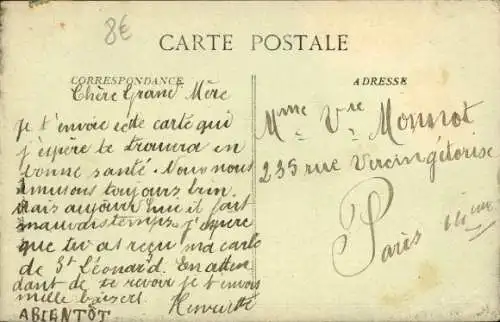 8€
CARTE POSTALE
CORRESPONDANCE
Chère Grand Mère
Je t'envoie cette carte qui
j'espère te trouvera en
bonne santé. Nous nous
amusons toujours bien.
Mais aujourd'hui il fait
mauvais temps. J'espère
que tu as reçu ma carte
de St Léonard. En atten
dant de se revoir je t'envois
mille baisers. Henriette
ABIENTÔT
ADRESSE
Mme Vve Monnot
235 rue Vircingétorise
Paris 14ème